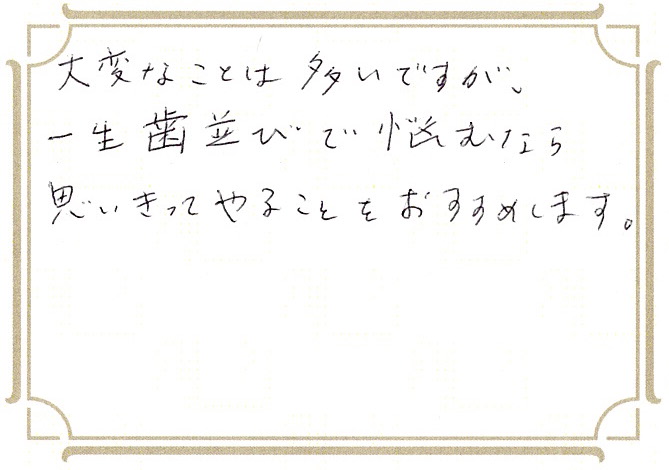 大変なことは多いですが、
一生歯並びで悩むなら
思いきってやることをおすすめします。